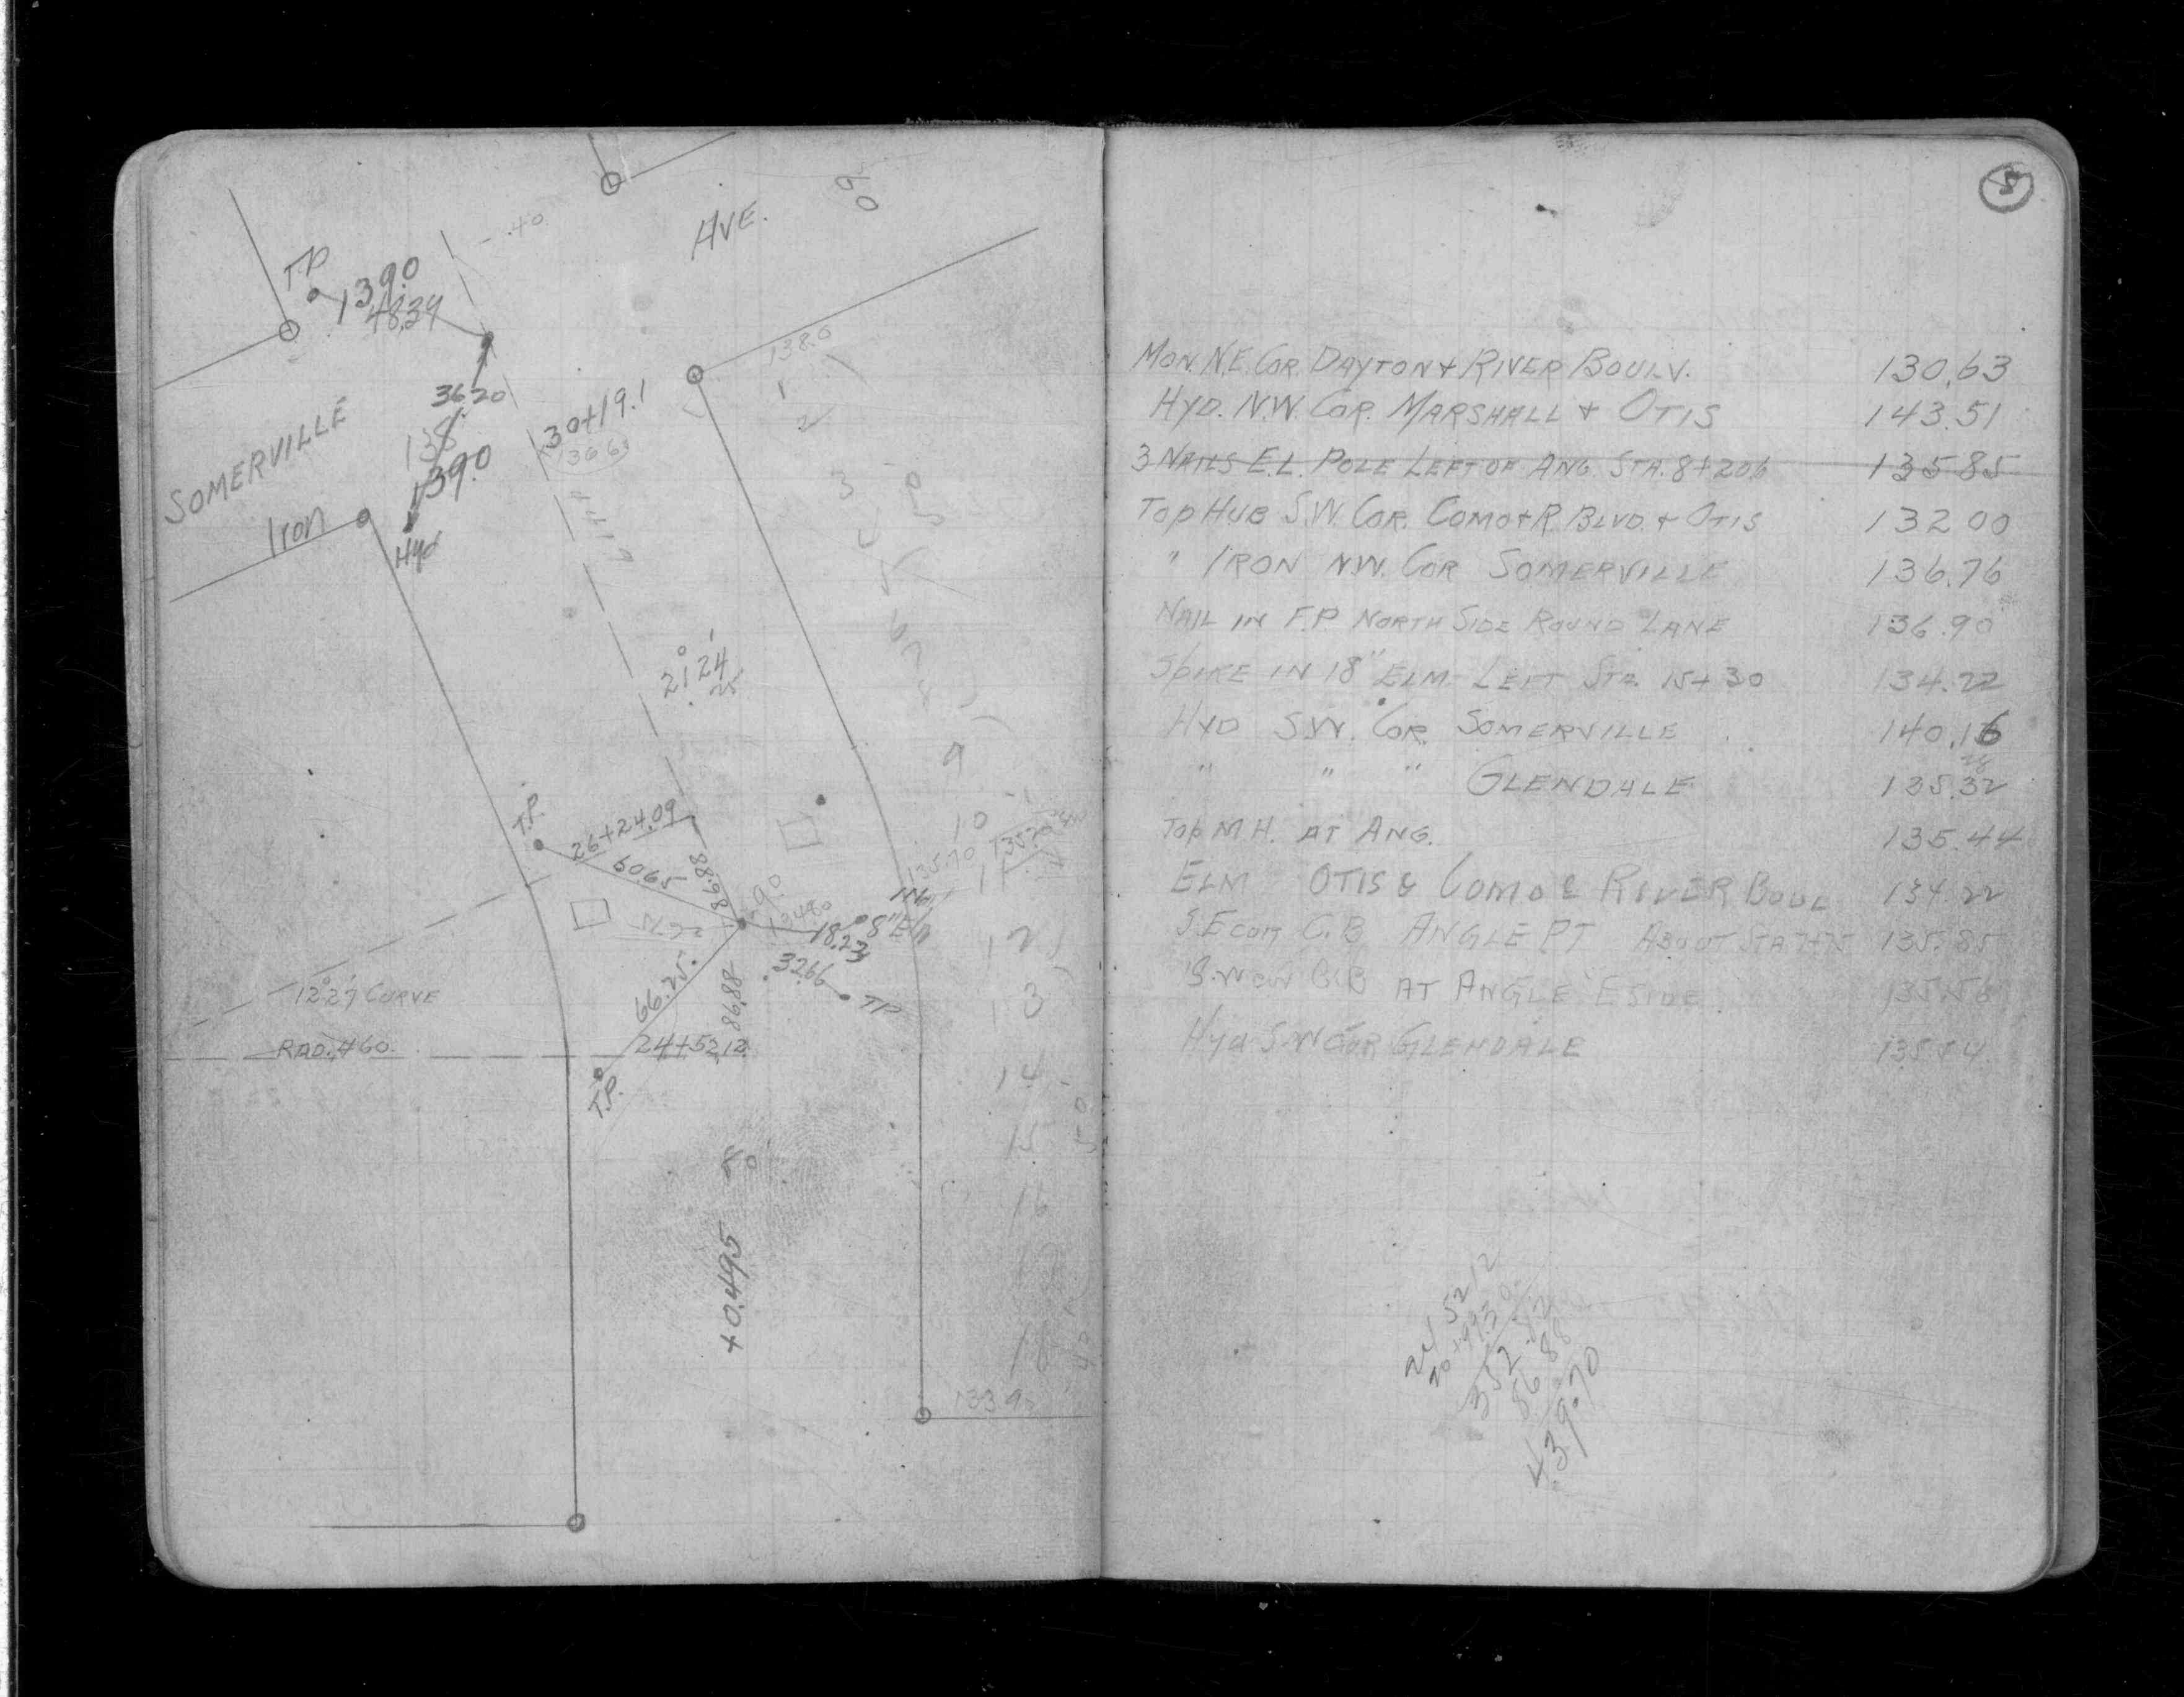 AVE.
T.P.
139.0
48.39
36.20
138
139.0
Hyd
SOMERVILLE
Iron
30+19.1
138.0
1
2
3
5
6
7
8
9
10
21° 24'
25
T.P.
26+24.09
60.65
86.88
135.70
18.23
8" Elm
32.66
TP
66.25
86.88
24+52.12
T.P.
12°27' CURVE
RAD. 460.
12
13
14
15
16
18
+0.495
133.9
5
MON. N.E. COR. DAYTON & RIVER BOULV. 130.63
HYD. N.W. COR. MARSHALL & OTIS 143.51
3 NAILS E.L. POLE LEFT OF ANG. STA. 8+206 135.85
TOP HUB S.W. COR. COMO & R. BLVD. & OTIS 132.00
" IRON N.W. COR SOMERVILLE 136.76
NAIL IN F.P. NORTH SIDE ROUND LANE 136.90
SPIKE IN 18" ELM LEFT STA. 15+30 134.22
HYD S.W. COR. SOMERVILLE 140.16
" " " GLENDALE 135.32
TOP M.H. AT ANG. 135.44
ELM OTIS & COMO & RIVER BOUL 134.22
S.E COR C.B ANGLE PT ABOUT STA 135.85
S.W COR C.B AT ANGLE E SIDE
HYD S.W COR GLENDALE
24 52 12
20+99.30
352.82
86 88
439.70